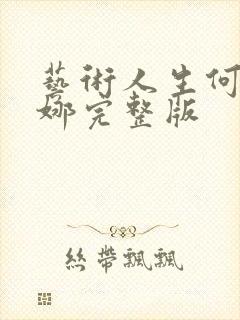 藝術人生何
娜完整版
絲帶飄飄